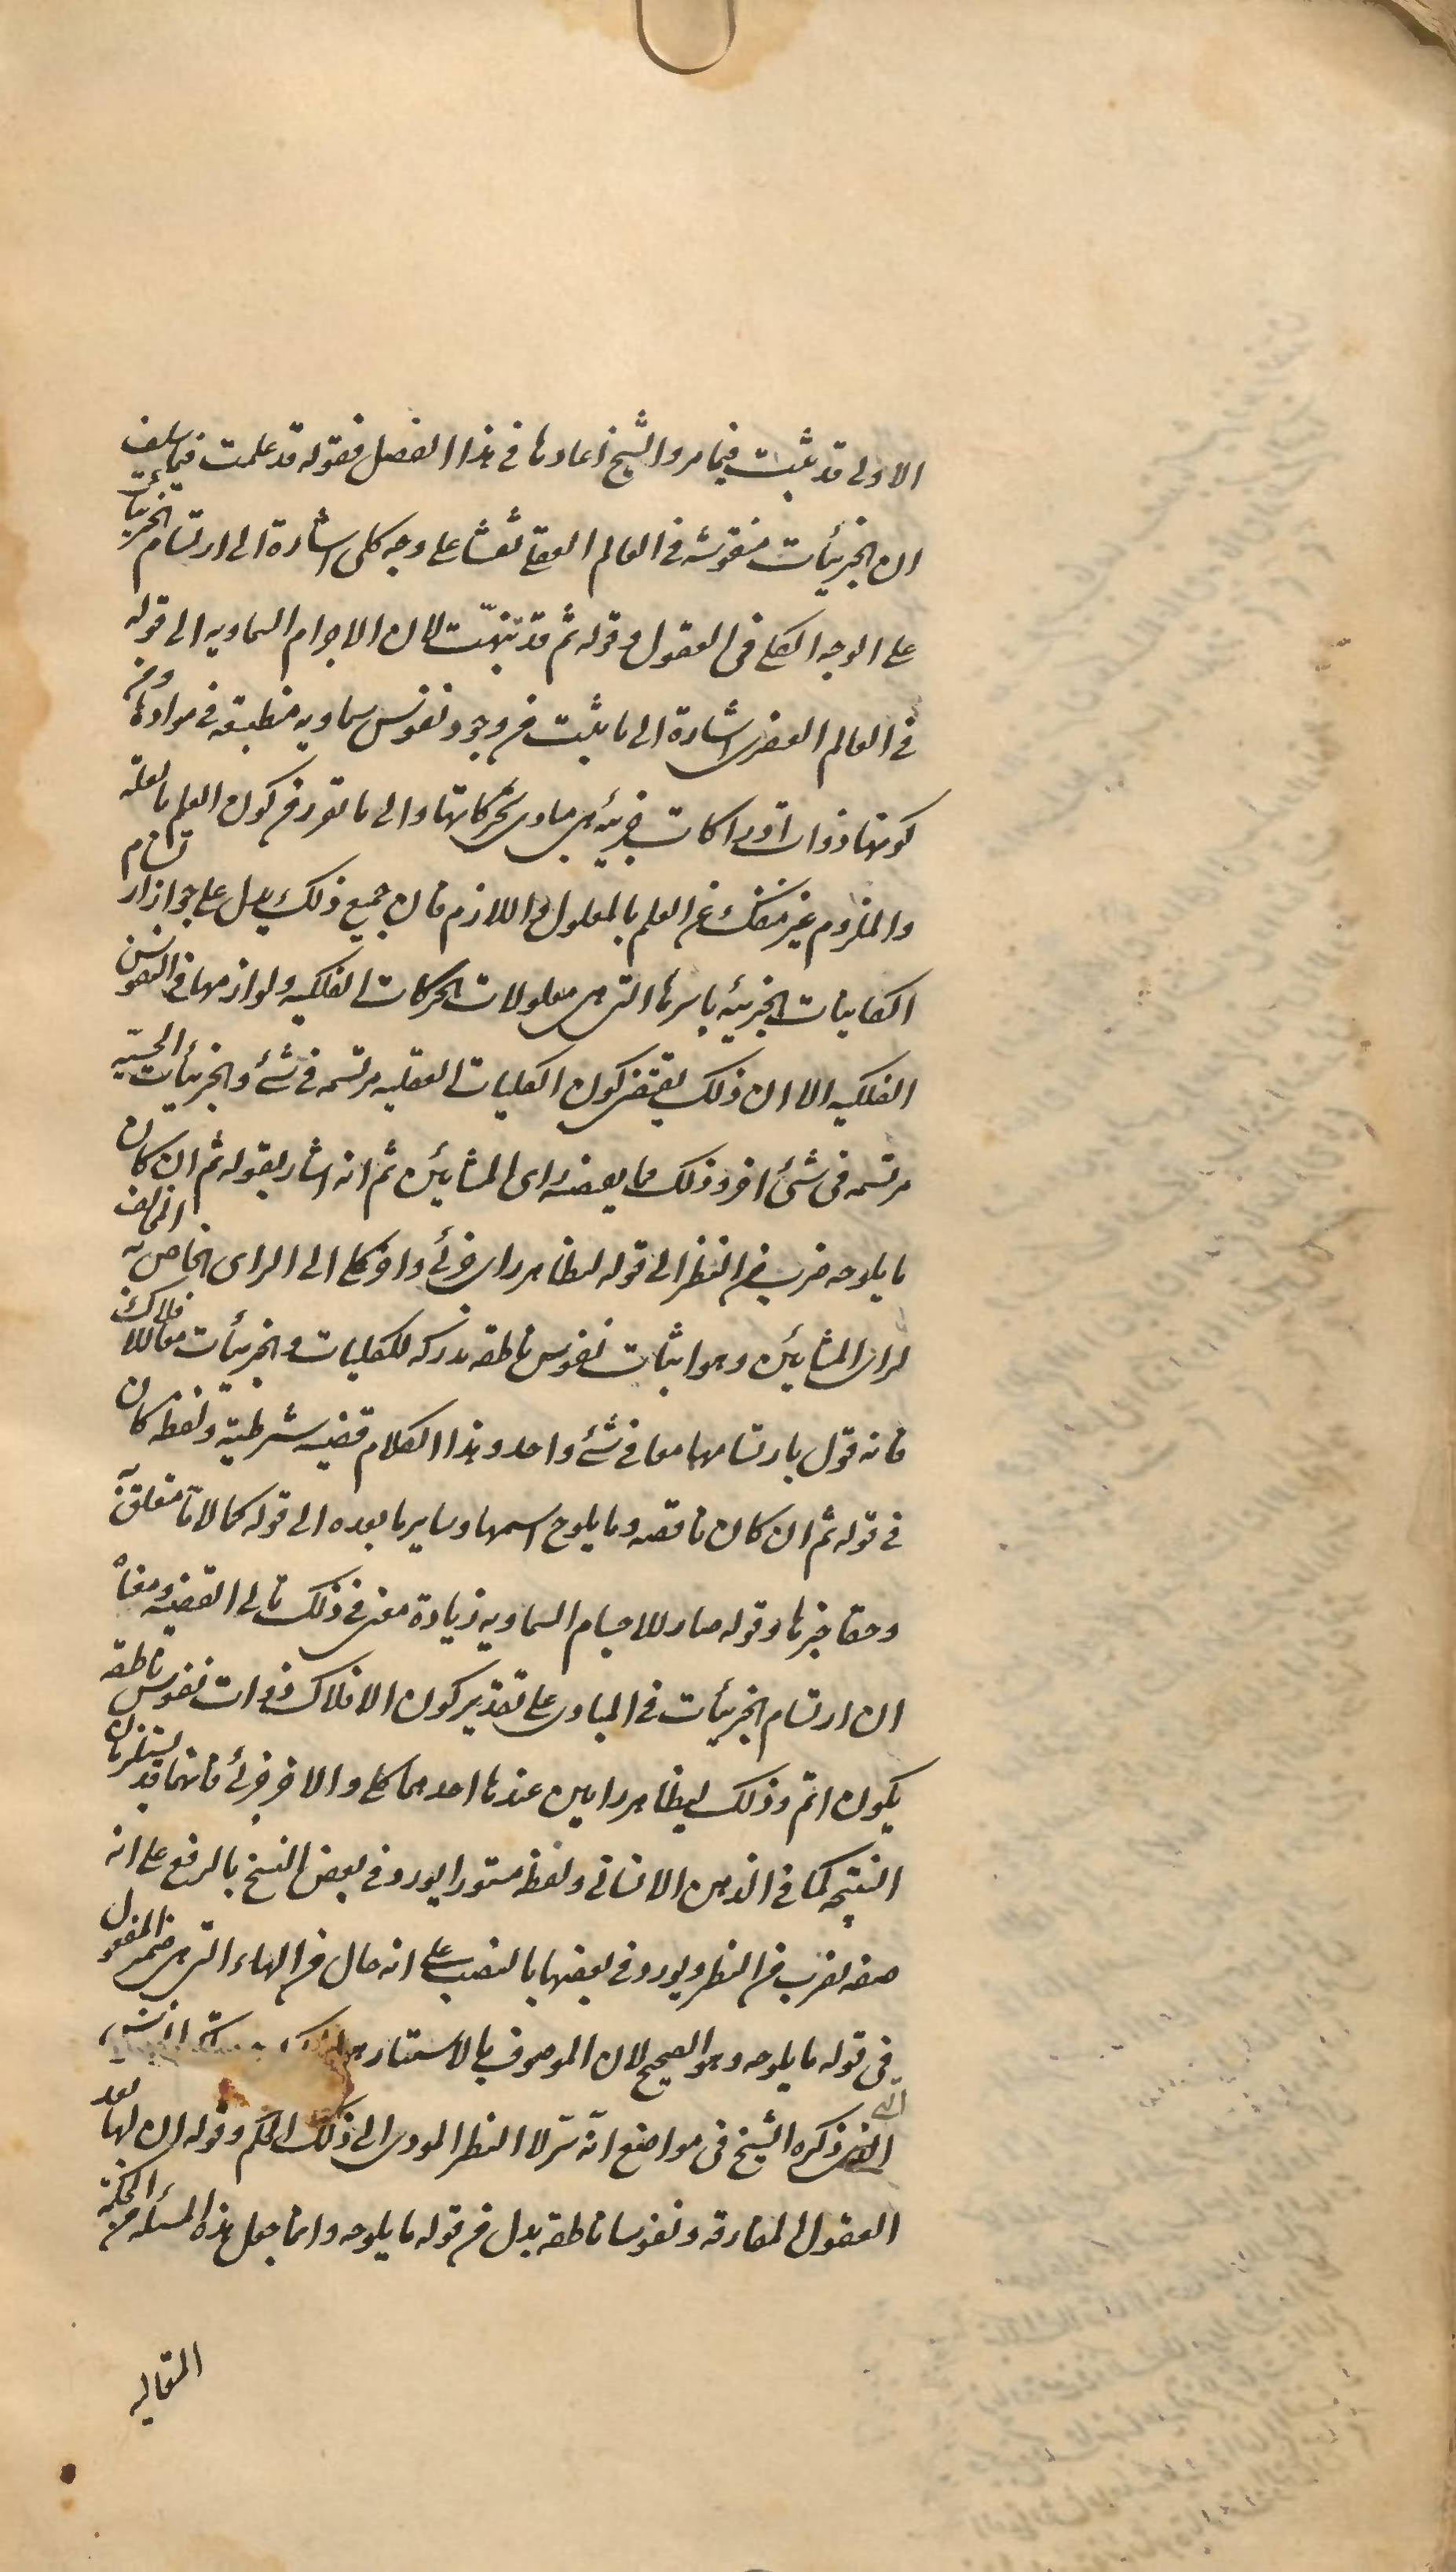 الاولى قد ثبت فيما مر والشيخ اعادها فى هذا الفصل فقوله قد علمت فيما سلف
ان الجزئيات منقوشه فى العالم العقلى نقشا على وجه كلى اشارة الى ارتسام الجزئيات
على الوجه الكلى فى العقول وقوله ثم قد تنبهت لان الاجرام السماويه الى قوله
فى العالم العنصرى اشارة الى ما ثبت من وجود نفوس سماويه منطبعه فى موادها ومن
كونها ذوات ادراكات جزئيه هى مبادى تحركاتها والى ما تقرر من كون العلم بالعلة
والملزوم غير منفك عن العلم بالمعلول واللازم فان جميع ذلك يدل على جواز ارتسام
الكاينات الجزئيه باسرها التى هى معلولات الحركات الفلكيه ولوازمها فى النفوس
الفلكيه الا ان ذلك يقتضى كون الكليات العقليه مرتسمه فى شئ والجزئيات الحسيّه
مرتسمه فى شئ اخر وذلك مما يقتضيه راى المشائين ثم انه اشار بقوله ثم ان كان
ما يلوحه ضرب من النظر الى قوله لتظاهر راى جزئى واخر كلى الى الراى الخاص به المخالف
لراى المشائين وهو اثبات نفوس ناطقه مدركه للكليات والجزئيات معا للافلاك
فانه قول بارتسامها معا فى شئ واحد وهذا الكلام قضيه شرطية ولفظه كان
فى قوله ثم ان كان ناقصه وما يلوح اسمها وساير ما بعده الى قوله كمالاتا متعلق به
وحقا خبرها وقوله صار للاجسام السماويه زيادة معنى فى ذلك تالى القضيه ومعناه
ان ارتسام الجزئيات فى المبادى على تقدير كون الافلاك ذوات نفوس ناطقه
يكون اتم وذلك ليظاهر رايين عندها احدهما كلى والاخر جزئى فانهما قد يستلزمان
النتيجه كما فى الذهن الانسانى ولفظه مستورا يورد فى بعض النسخ بالرفع على انه
صفه لضرب من النظر ويورد فى بعضها بالنصب على انه حال من الهاء التى هى ضمير المفعول
فى قوله ما يلوحه وهو الصحيح لان الموصوف بالاستتار هو
التى ذكره الشيخ فى مواضع انه سر لا النظر المودى الى ذلك الحكم وقوله ان لها بعد
العقول المفارقه نفوسا ناطقه بدل من قوله ما يلوحه وانما جعل هذه المسئله من الحكمة
المتعاليه